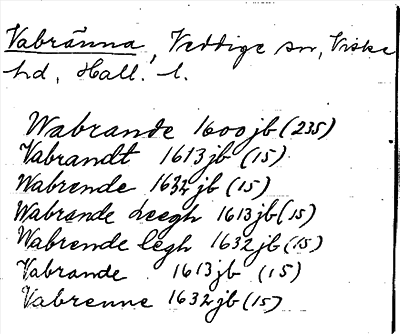 Vabränna, Veddige sn, Viske
hd, Hall. l.
Wabrande 1600 jb (235)
Vabrandt 1613 jb (15)
Wabrende 1632 jb (15)
Wabrande leegh 1613 jb (15)
Wabrende legh 1632 jb (15)
Vabrande 1613 jb (15)
Vabrenne 1632 jb (15)